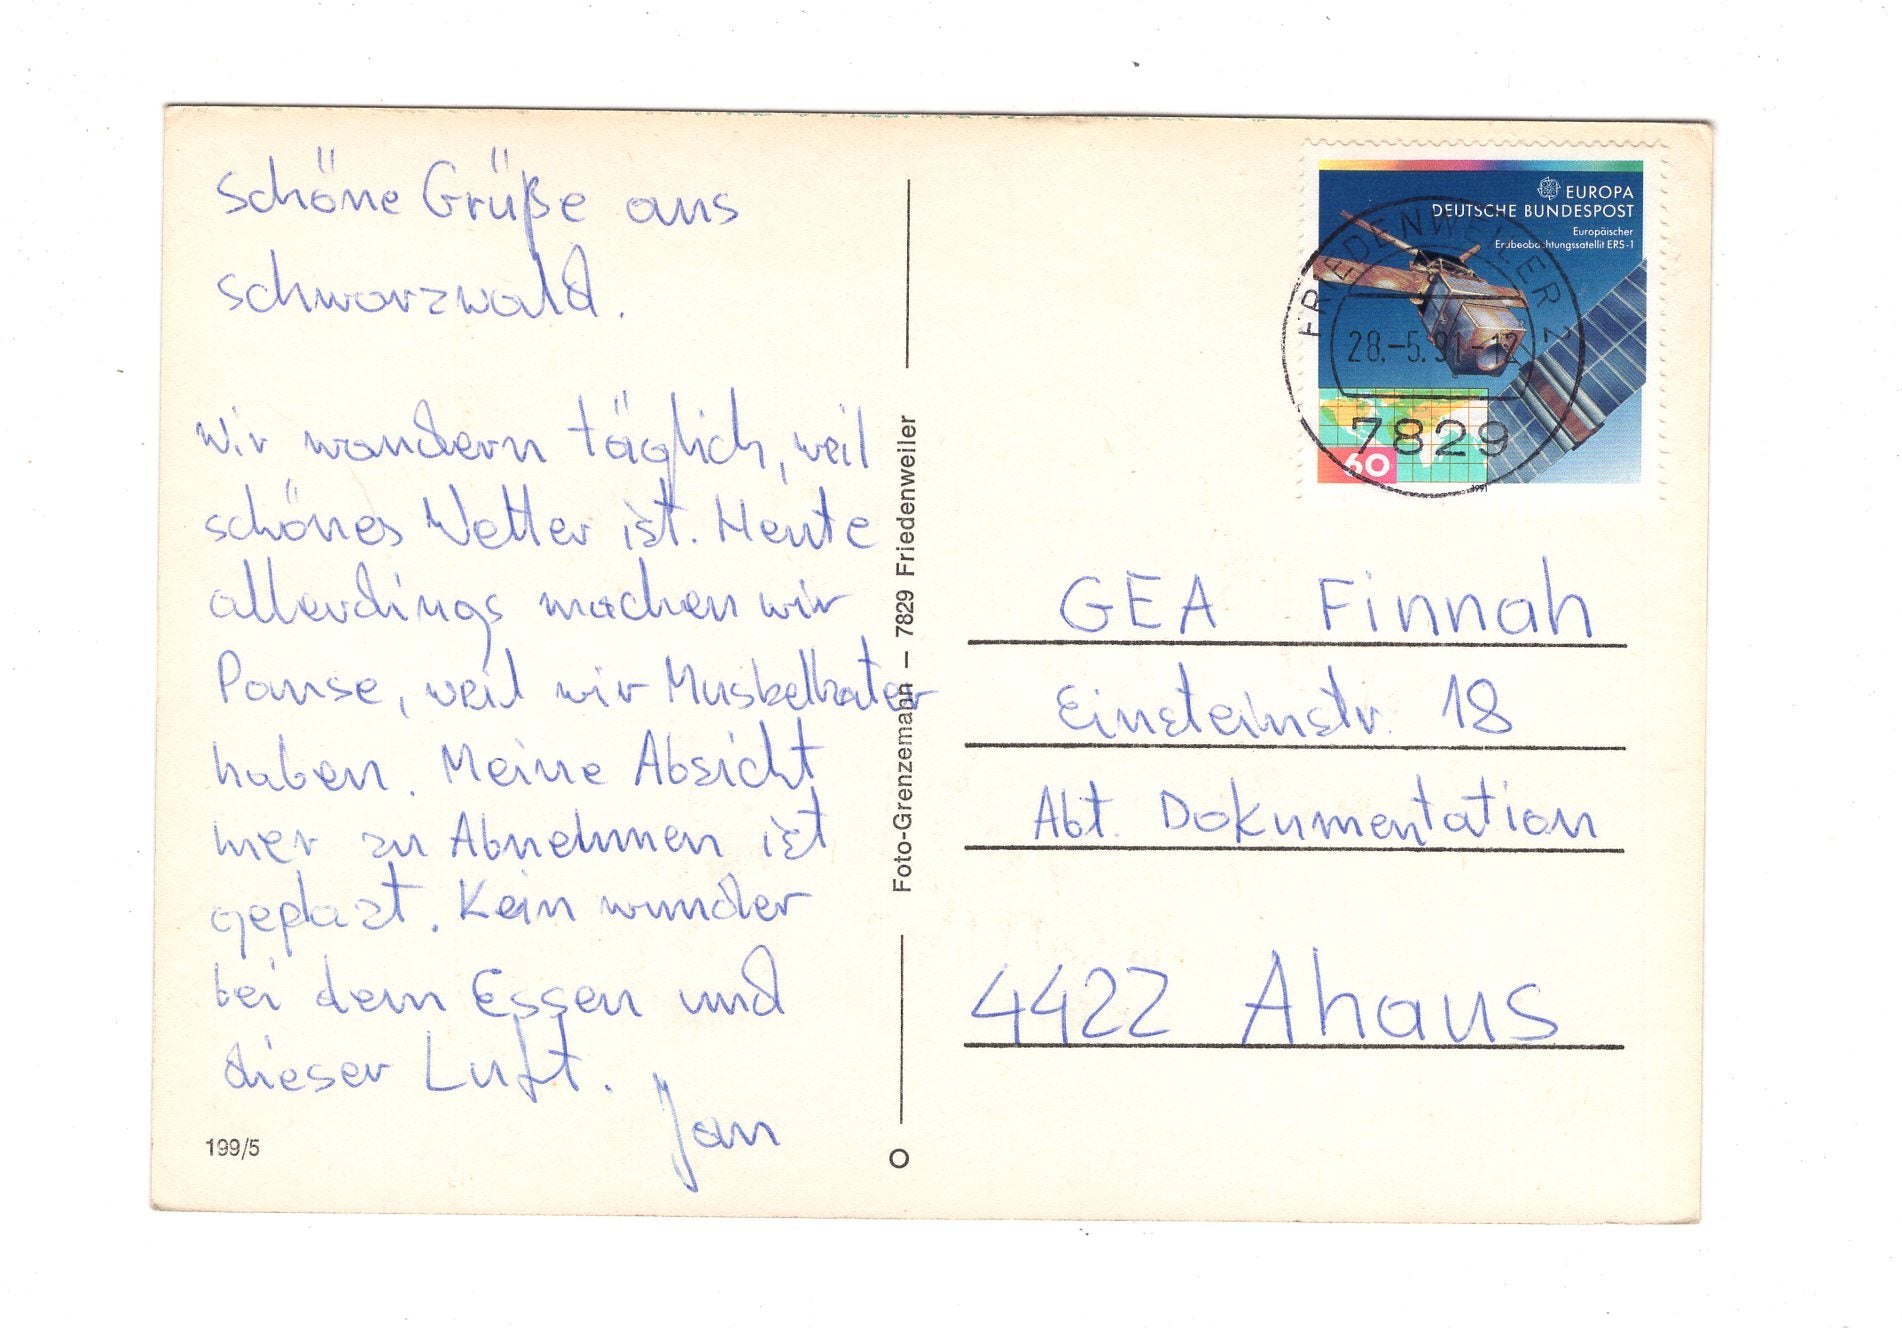 schöne Grüße aus
schwarzwald.
Wir wandern täglich, weil
schönes Wetter ist. Heute
allerdings machen wir
Pause, weil wir Muskelkater
haben. Meine Absicht
hier zu Abnehmen ist
geplazt. Kein wunder
bei dem Essen und
dieser Luft.
Jan
199/5
Foto-Grenzemann – 7829 Friedenweiler
EUROPA
DEUTSCHE BUNDESPOST
Europäischer
Erdbeobachtungssatellit ERS-1
60
1991
FRIEDENWEILER 2
28.-5.91-12
7829
GEA Finnah
Einsteinstr. 18
Abt. Dokumentation
4422 Ahaus